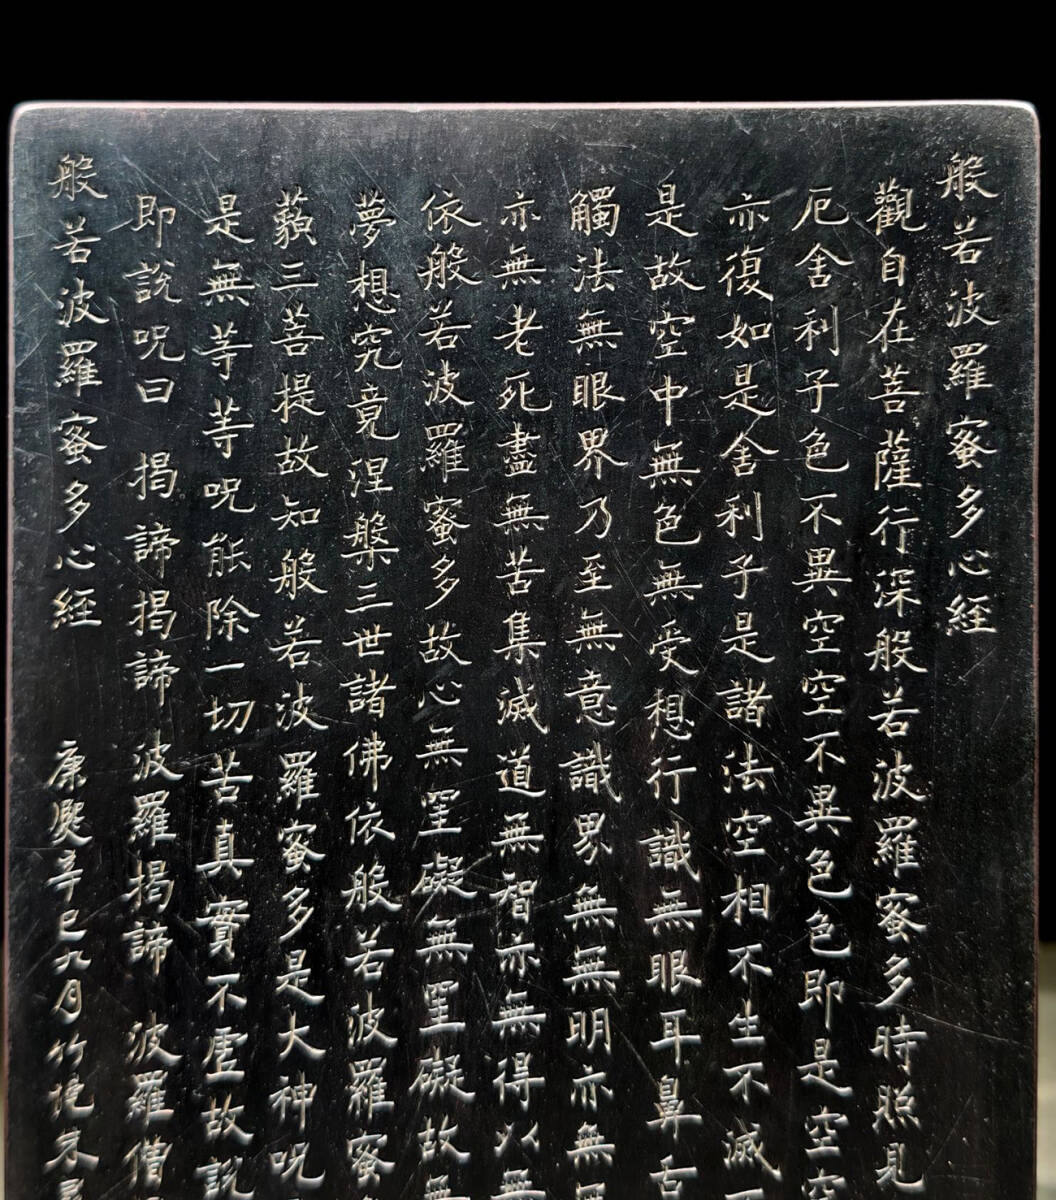 般若波羅蜜多心經
觀自在菩薩行深般若波羅蜜多時照見
厄舍利子色不異空空不異色色即是空空
亦復如是舍利子是諸法空相不生不滅不
是故空中無色無受想行識無眼耳鼻舌
觸法無眼界乃至無意識界無無明亦無無
亦無老死盡無苦集滅道無智亦無得以無
依般若波羅蜜多故心無罣礙無罣礙故無
夢想究竟涅槃三世諸佛依般若波羅蜜多
藐三菩提故知般若波羅蜜多是大神呪
是無等等呪能除一切苦真實不虛故說
即說呪曰 揭諦揭諦 波羅揭諦 波羅僧
般若波羅蜜多心經 康熙辛巳九月竹